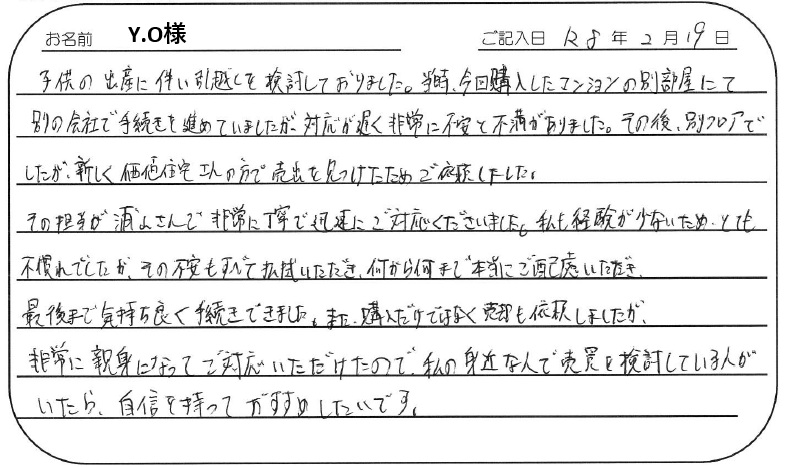 お名前 Y.O様 ご記入日 R8年2月19日
子供の出産に伴い引越しを検討しておりました。当時、今回購入したマンションの別部屋にて
別の会社で手続きを進めていましたが、対応が遅く非常に不安と不満がありました。その後、別フロアで
したが、新しく価値住宅さんの方で売出を見つけたためご依頼しました。
その担当が浦山さんで非常に丁寧で迅速にご対応くださいました。私も経験が少ないため、とても
不慣れでしたが、その不安もすべて払拭いただき、何から何まで本当にご配慮いただき、
最後まで気持ち良く手続きできました。また、購入だけではなく売却も依頼しましたが、
非常に親身になってご対応いただけたので、私の身近な人で売買を検討している人が
いたら、自信を持っておすすめしたいです。